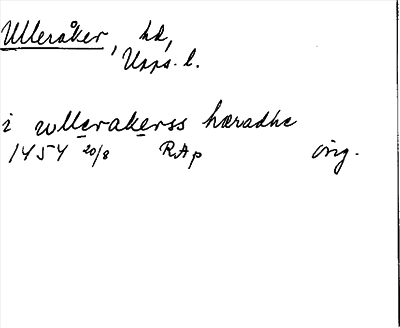 Ulleråker, hd,
Upps. l.
i wllerakerss hæradhe
1454 20/8 RAp orig.